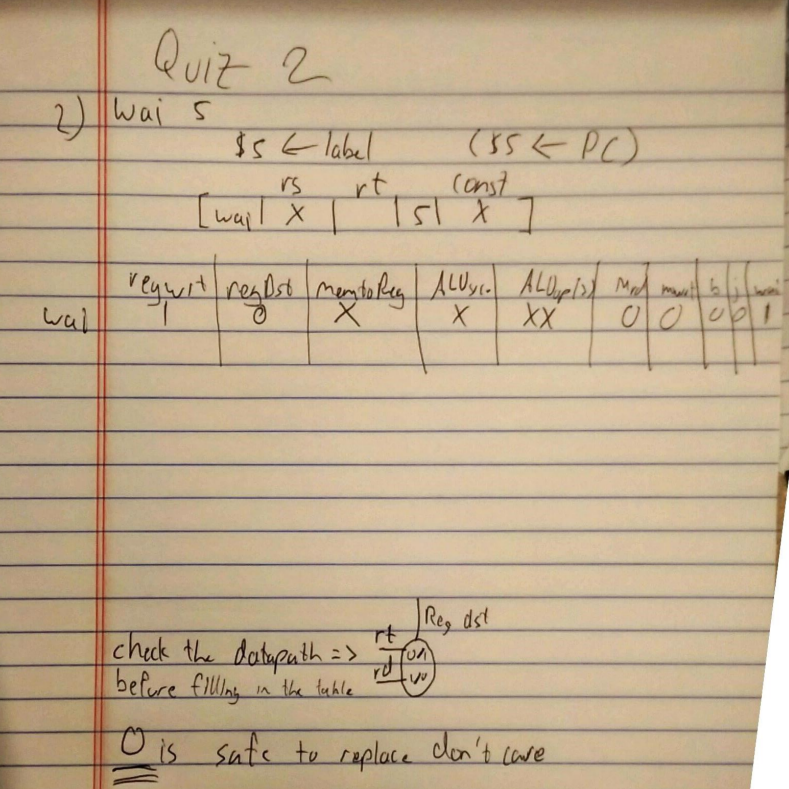 Quiz 2
2) Wai 5
$5 ← label ($5 ← PC)
rs rt const
[wai | X | | 5 | X ]
regwrt regDst memtoReg ALUsrc ALUop(s) Mrd mwrt b j wai
wai 1 0 X X XX 0 0 0 0 1
Reg dst
rt
check the datapath =>
rd
before filling in the table
0 is safe to replace don't care